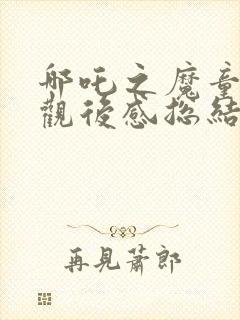 哪吒之魔童
觀後感總結
再見蕭郎